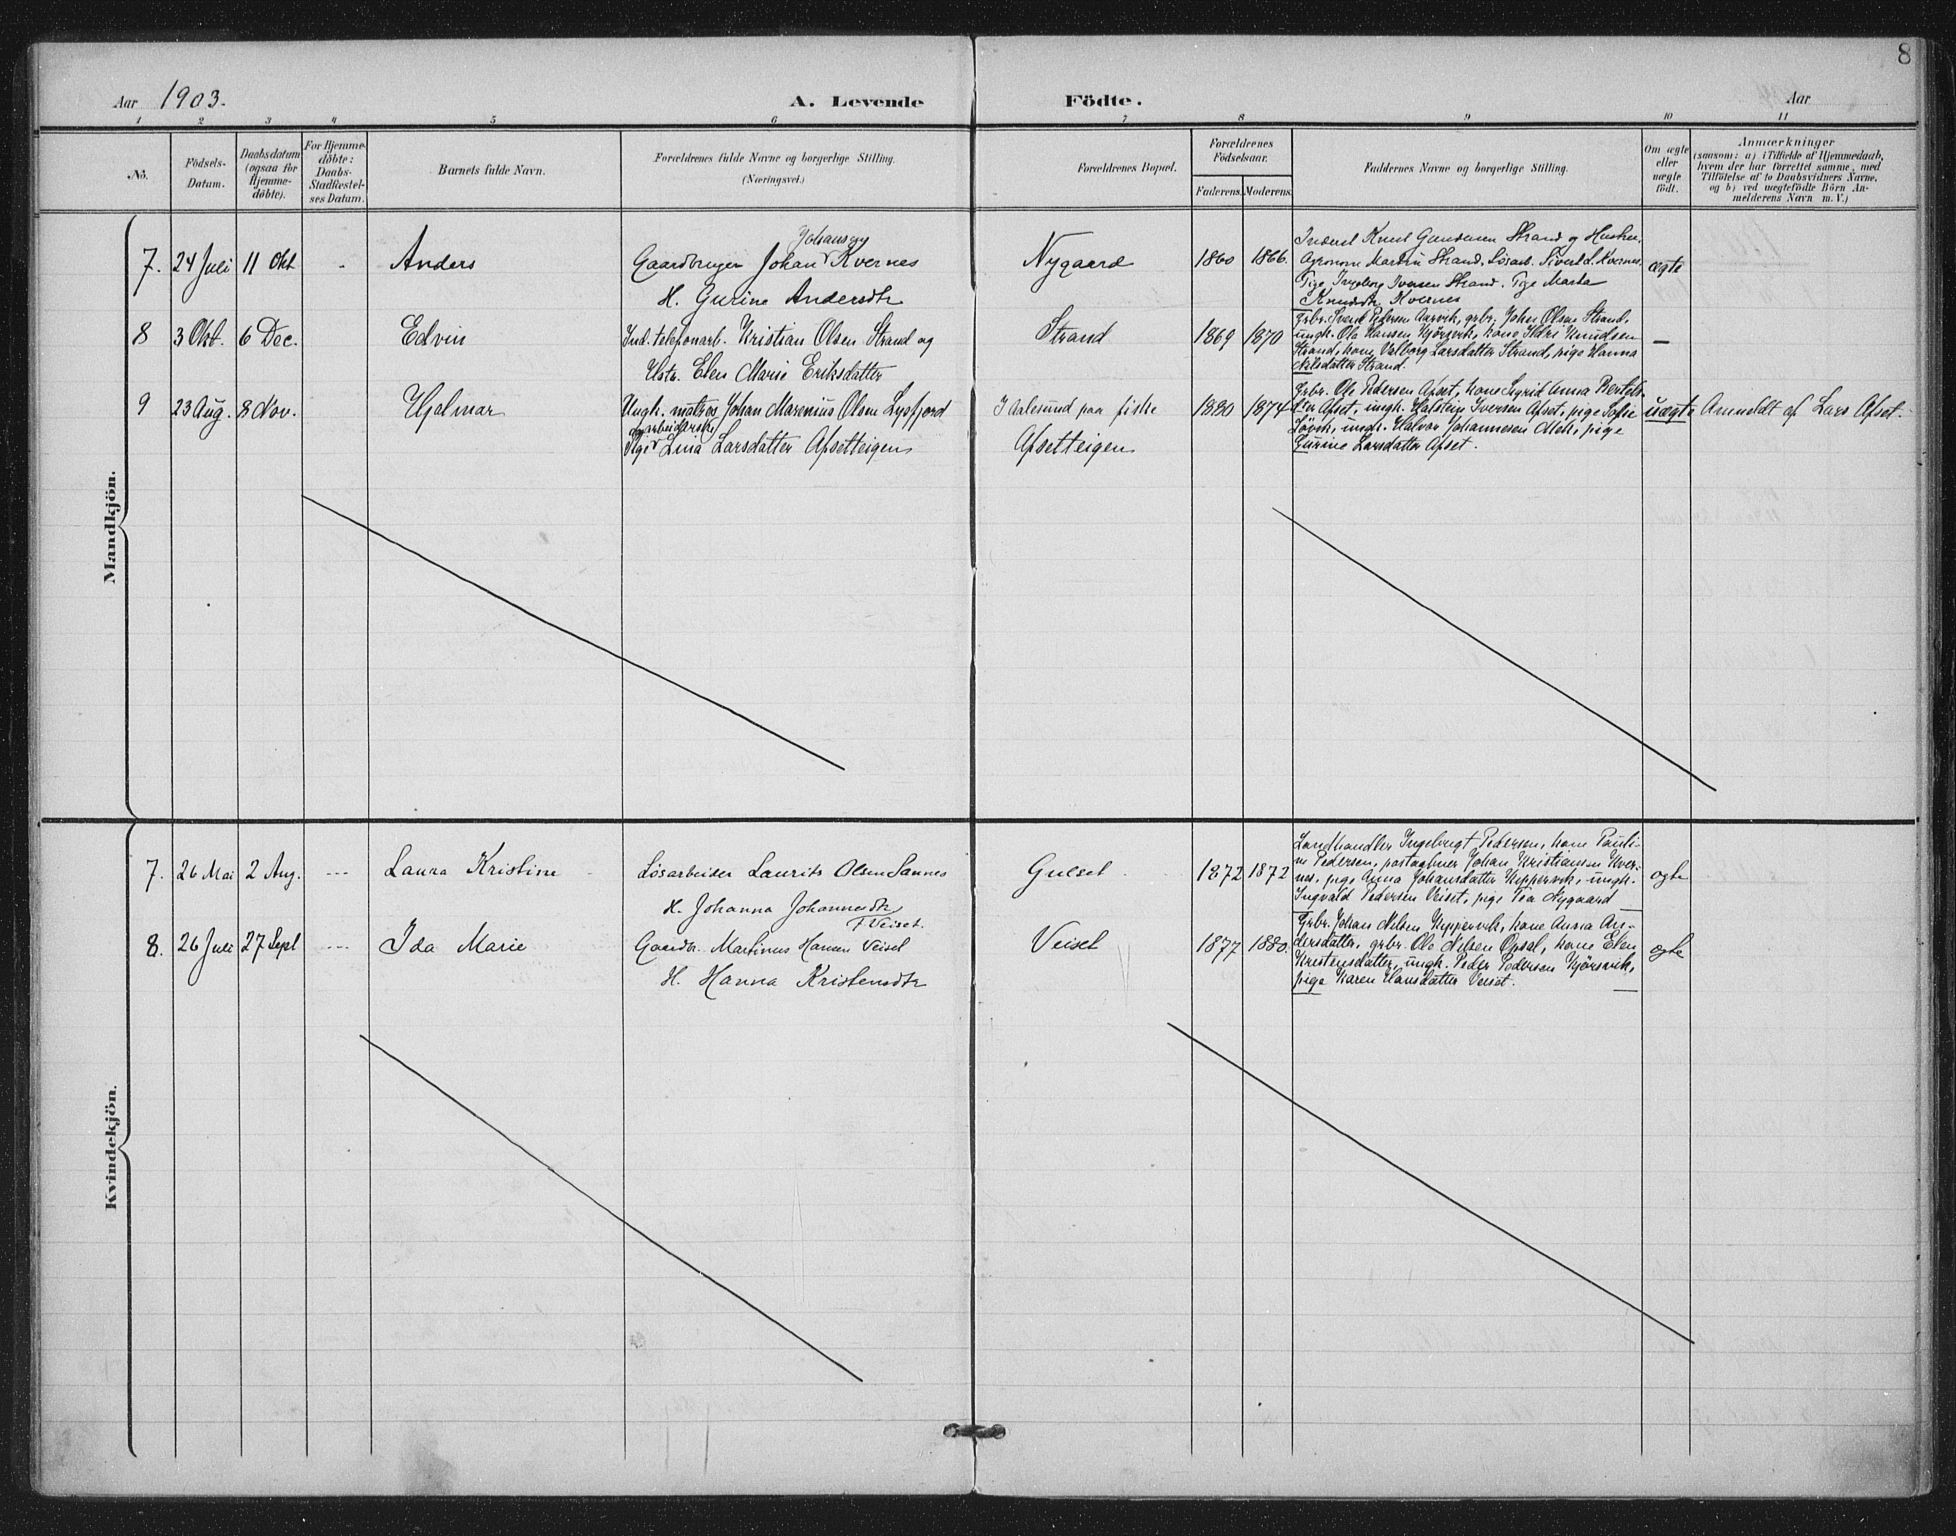 8
Aar 1903. A. Levende Födte. Aar
1 2 3 4 5 6 7 8 9 10 11
No.
Födsels-
Datum.
Daabsdatum
(ogsaa for
Hjemme-
døbte).
For Hjemme-
døbte:
Daabs-
Stadfæstel-
ses Datum.
Barnets fulde Navn.
Forældrenes fulde Navne og borgerlige Stilling.
(Næringsvei.)
Forældrenes Bopæl.
Forældrenes
Födselsaar.
Faderens. Moderens.
Faddernes Navne og borgerlige Stilling.
Om ægte
eller
uægte
födt.
Anmærkninger
(saasom: a) i Tilfælde af Hjemmedaab,
hvem der har forrettet samme, med
Tilföielse af to Daabsvidners Navne,
og b) ved uægtefödte Börn An-
melderens Navn m. V.)
Mandkjön.
7. 24 Juli 11 Okt - Anders
Johansen
Gaardbruger Johan Kvernes
H. Gurine Andersdtr
Nygaard 1860 1866.
Inderst Knut Gundersen Strand og Hustru,
Agronom Martin Strand, Løsarb. Sivert L. Kvernes.
Pige Ingeborg Iversen Strand. Pige Marta
Knudsdtr Kvernes
ægte
8 3 Okt. 6 Dec. Edvin
Ind. telefonarb. Kristian Olsen Strand og
Hstr. Elen Marie Eriksdatter
Strand 1869 1870
grbr. Svend Pedersen Aarvik, grbr. Johan Olsen Strand,
ungk. Ola Hansen Kjørsvik, kone Knudsen
Strand, kone Valborg Larsdatter Strand, pige Hanna
Nilsdatter Strand.
—
9 23 Aug. 8 Nov. Hjalmar
Ungk. matros Johan Marenius Olsen Lysfjord
og arbeiderske
Pige Lina Larsdatter Afsetteigen
I Aalesund paa fiske
Afsetteigen
1880 1874
Grbr. Ole Pedersen Afset, kone Sigrid Anna Bertels-
dtr Afset, ungk. Hafstein Iversen Afset, pige Sofie
Løvik, ungk. Halvor Johannesen Mek, pige
Gurine Larsdatter Afset.
uægte Anmeldt af Lars Afset.
Kvindekjön.
7. 26 Mai 2 Aug. --- Laura Kristine
Løsarbeider Laurits Olsen Sannes
H. Johanna Johannesdtr
F. Veiset.
Gulset 1872 1872
Landhandler Ingebrigt Pedersen, kone Pauli-
ne Pedersen, postaabner Johan Kristiansen Kver-
nes, pige Anna Johansdatter Kippervik, ungk.
Ingvald Pedersen Veiset, pige Tea Nygaard
ægte
8. 26 Juli 27 Sept --- Ida Marie
Gaardbr. Martinus Hansen Veiset
H. Hanna Kristensdtr
Veiset 1877 1880.
Grbr. Johan Nilsen Kippervik, kone Anna An-
dersdatter, grbr. Ole Nilsen Opsal, kone Elen
Kristensdatter, ungk. Peder Pedersen Kjørsvik,
pige Karen Hansdatter Veiset.
ægte